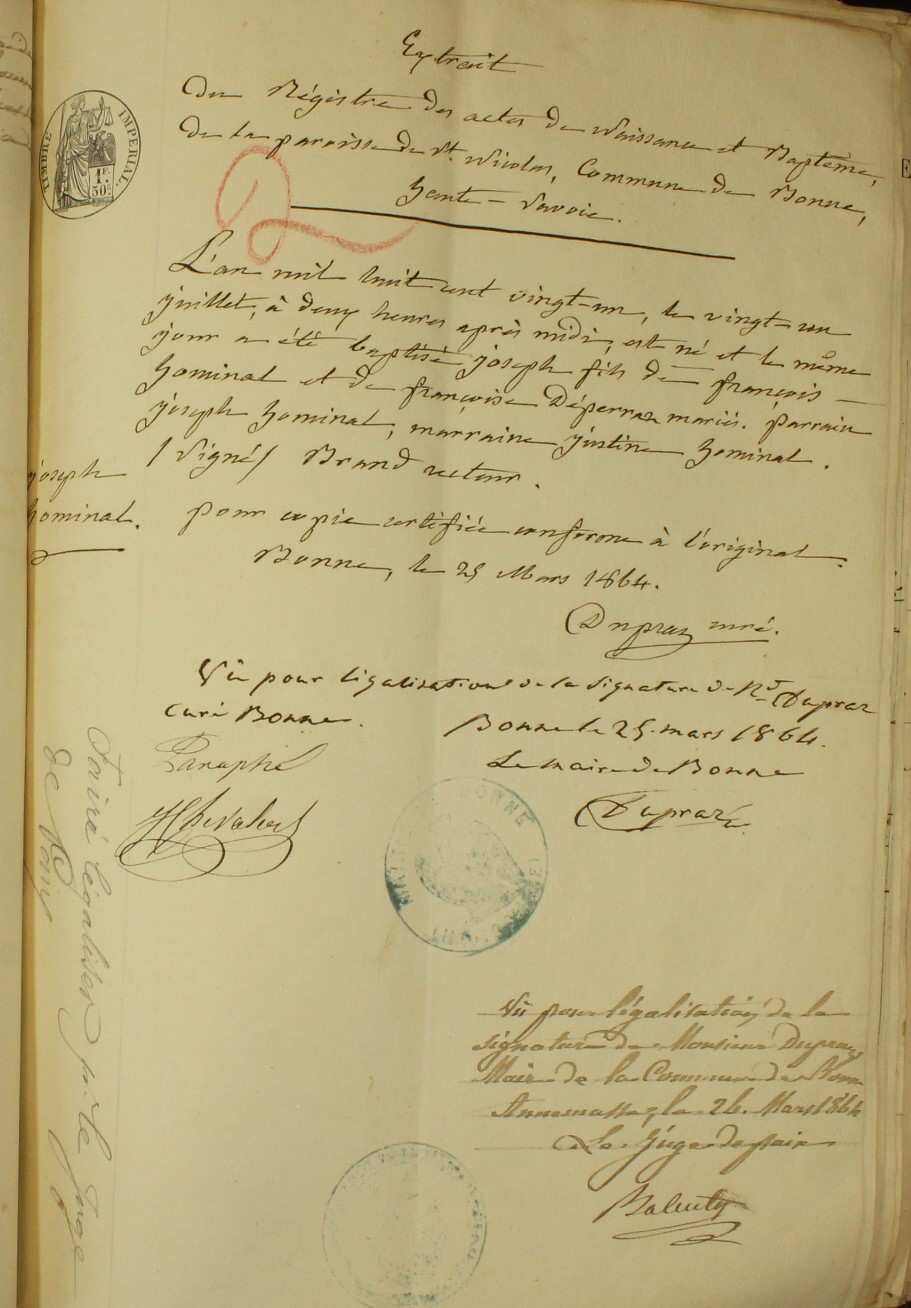 Extrait
du Régistre des actes de Naissance et Baptème,
de la paroisse de St. Nicolas, Commune de Bonne,
haute-Savoie.
TIMBRE IMPERIAL.
1F.
50C
L'an mil huit cent vingt-un, le vingt-un
juillet, à deux heures après midi, est né et le même
jour a été baptisé joseph fils de françois
Hominal et de françoise Déperraz mariés. parrain
joseph Hominal, marraine justine Hominal.
/ Signé / Brand recteur.
joseph
hominal.
pour copie certifiée conforme à l'original.
Bonne, le 25 Mars 1864.
Dupraz curé.
Vu pour légalisation de la signature de Rd Dupraz
Curé Bonne.
Bonne le 25 mars 1864.
Le maire de Bonne
Paraphé
Dupraz
BONNE
Vu pour légalisation de la
signature de Monsieur Dupraz
Maire de la Commune de Bonne
Annemasse, le 26 Mars 1864
Le Juge de paix
faire légaliser p. le Juge
de